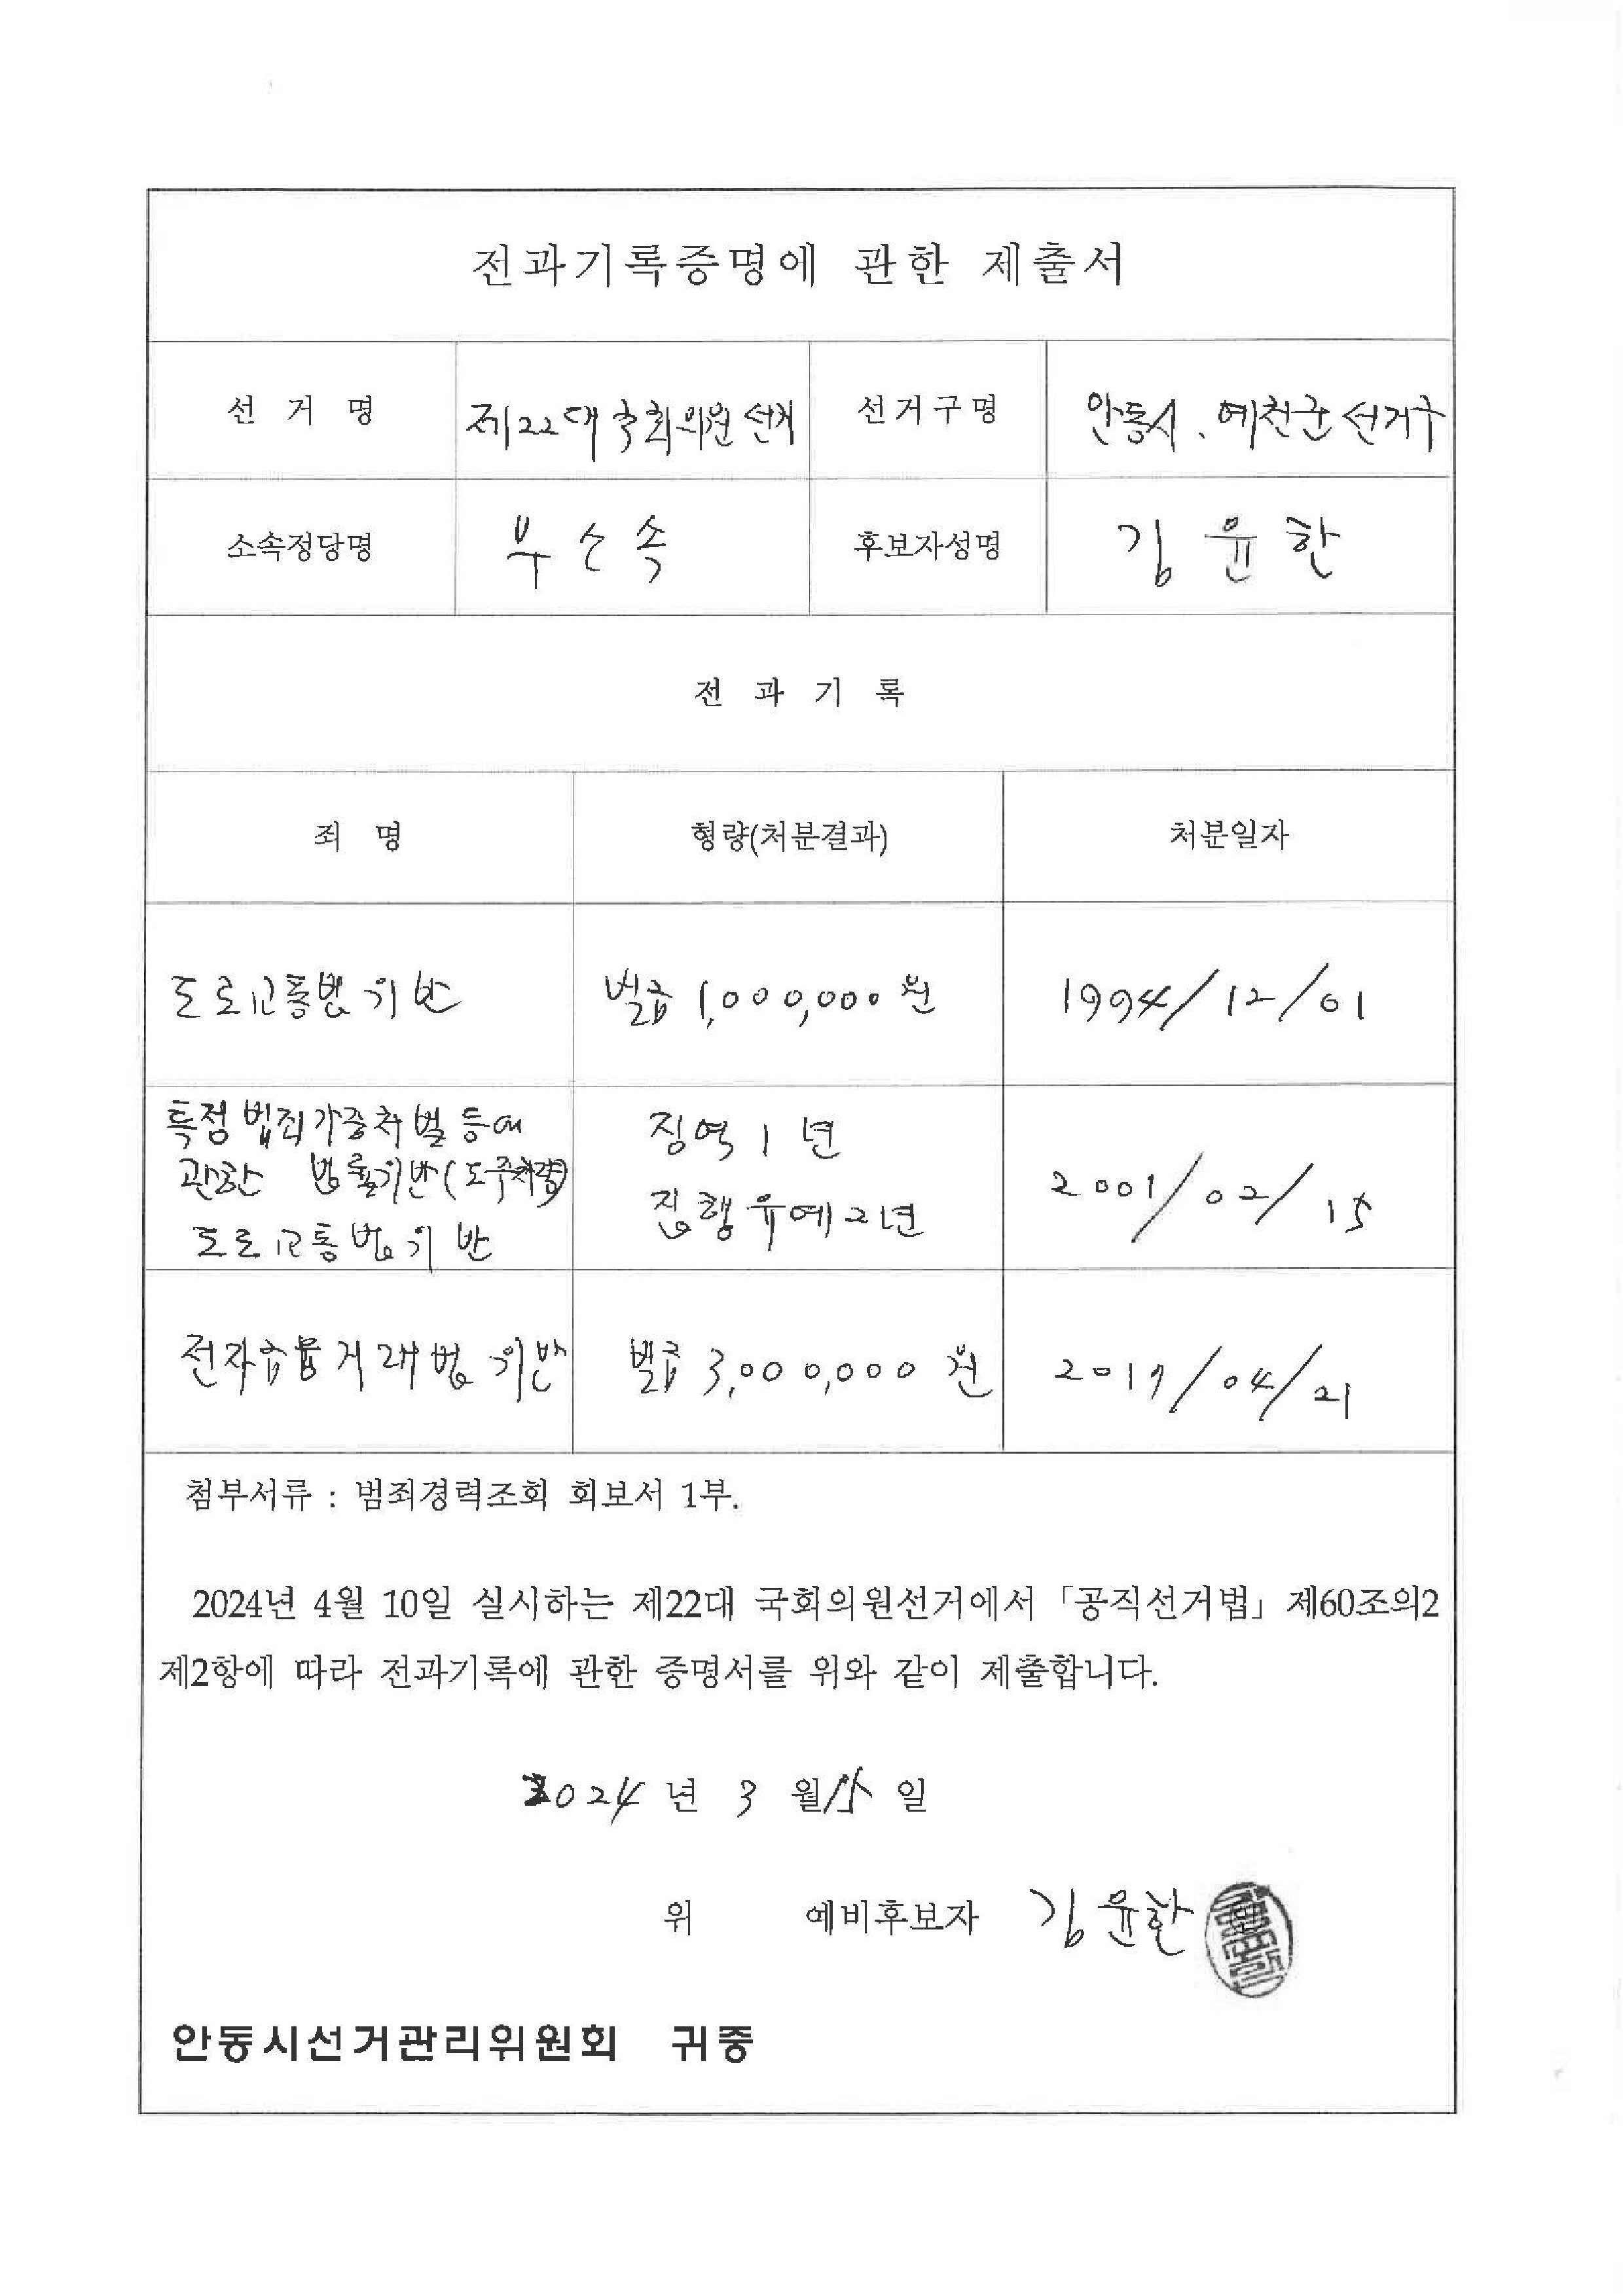 전과기록증명에 관한 제출서
선 거 명 제22대국회의원선거 선거구명 안동시、예천군선거구
소속정당명 무소속 후보자성명 김윤한
전 과 기 록
죄 명 형량(처분결과) 처분일자
도로교통법위반 벌금 1,000,000원 1994/12/01
특정범죄가중처벌등에
관한 법률위반(도주차량)
도로교통법위반
징역 1년
집행유예2년
2001/02/15
전자금융거래법위반 벌금 3,000,000원 2017/04/21
첨부서류 : 범죄경력조회 회보서 1부.
2024년 4월 10일 실시하는 제22대 국회의원선거에서 「공직선거법」 제60조의2
제2항에 따라 전과기록에 관한 증명서를 위와 같이 제출합니다.
2024년 3월 15일
위 예비후보자 김윤한
안동시선거관리위원회 귀중